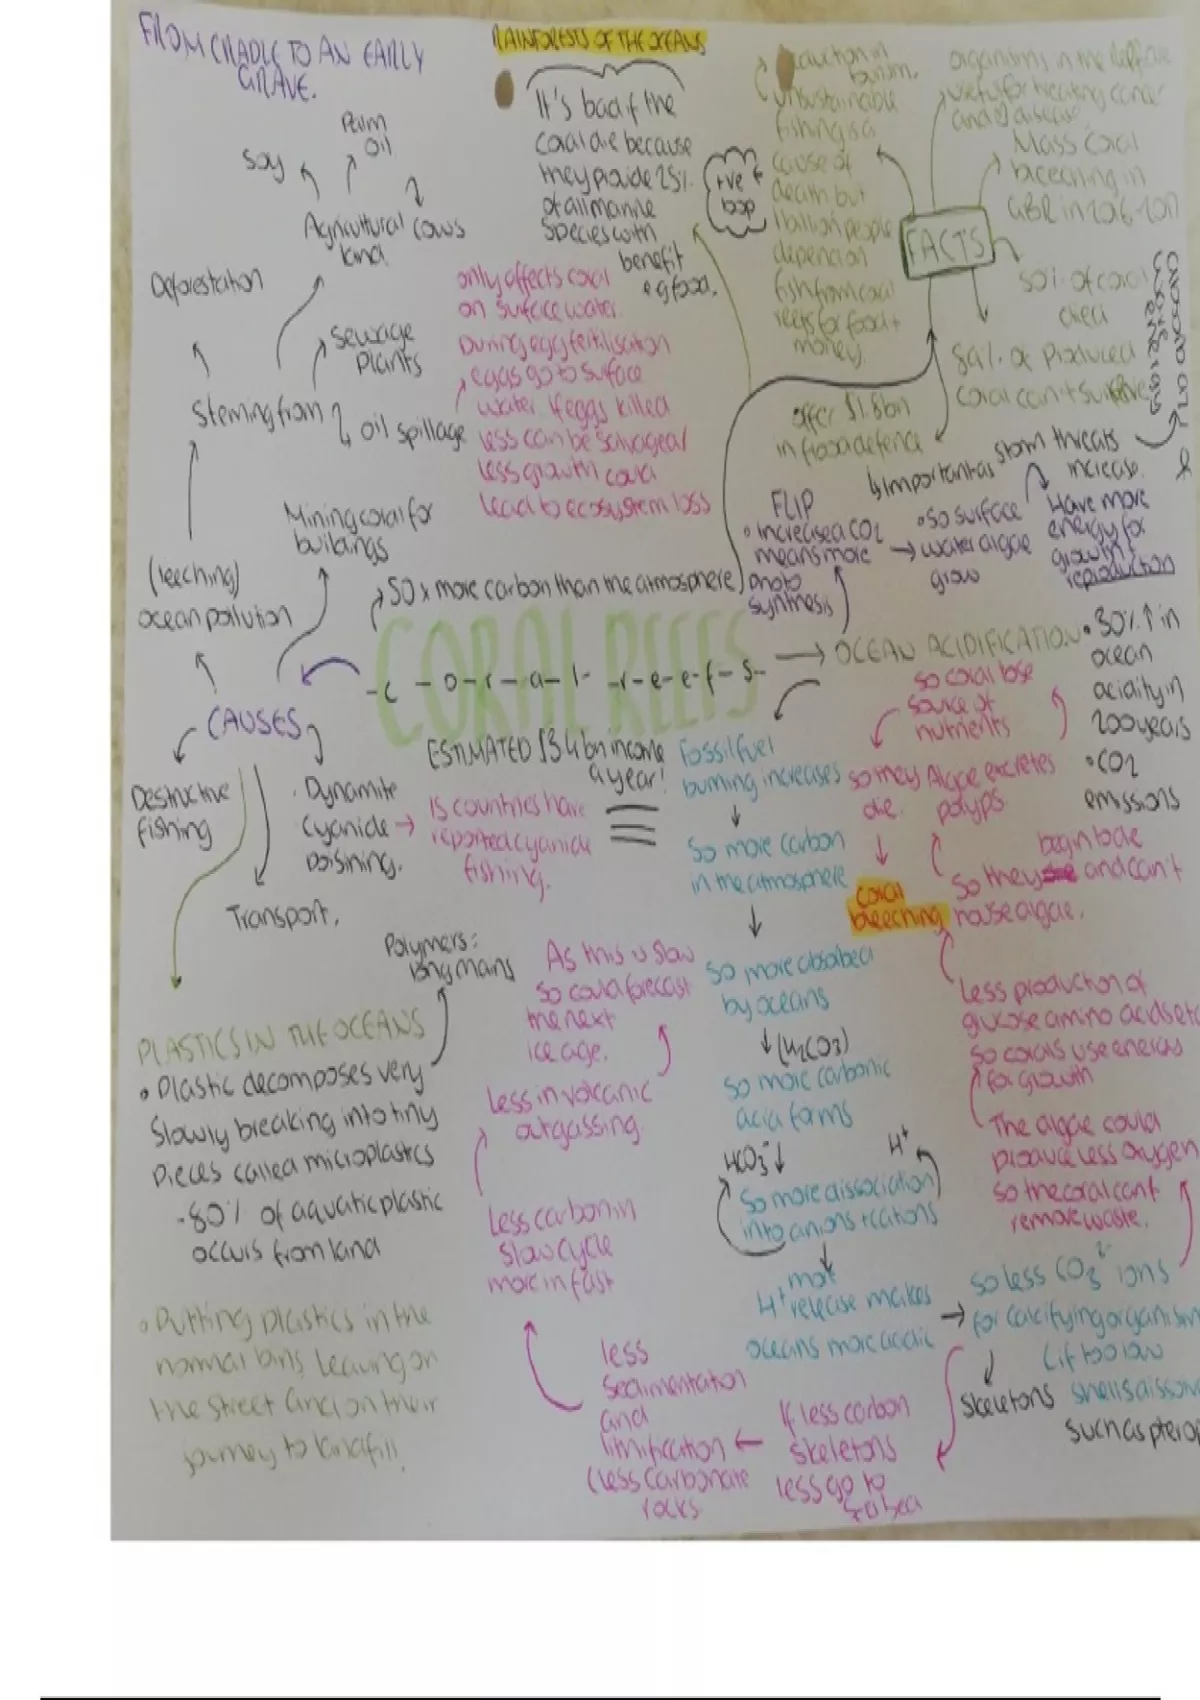 FROM CRADLE TO AN EARLY
GRAVE.
RAINFORESTS OF THE OCEANS
It's bad if the
coral die because
they provide 25%
of all marine
species with
benefit
eg food.
Palm
oil
Soy
Agricultural cows
land
Deforestation
Sewage
plants
Steming from
oil spillage
Mining coral for
buildings
(leeching)
ocean pollution
only affects coral
on surface water.
During egg fertilisation
eggs go to surface
water. If eggs killed
less can be salvaged/
less growth could
lead to ecosystem loss
+ve
loop
tourism.
Unsustainable
fishing is a
cause of
death but
1 billion people
depend on
fish from coral
reefs for food +
money.
organisms in the reef are
useful for treating cancer
and disease
Mass coral
bleeching in
GBR in 2016-2017
FACTS
50% of coral
died
89% of produced
coral can't survive
offer $1.8bn
in flood defence
↳ important as
storm threats
increase.
FLIP
• Increased CO2
means more
photo
synthesis
• So surface
water algae
grow
Have more
energy for
growth +
reproduction
50 x more carbon than the atmosphere
CORAL REEFS
-c-o-r-a-l- -r-e-e-f-s-
OCEAN ACIDIFICATION
• 30% ↑ in
ocean
acidity in
200 years
• CO2
emissions
CAUSES
Destructive
fishing
• Dynamite
cyanide →
poisining.
15 countries have
reported cyanide
fishing.
Transport.
ESTIMATED $34bn income
a year!
Fossil fuel
burning increases
So more carbon
in the atmosphere
So more absorbed
by oceans
(H2CO3)
So more carbonic
acid forms
HCO3-
H+
So more dissociation
into anions + cations
more
H+ release makes
oceans more acidic
So less CO3 2- ions
for calcifying organisms
(if too low
shells dissolve
such as pterop
skeletons
so coral lose
source of
nutrients
so they
die.
Algae excretes
polyps
begin to die
so they and can't
house algae.
coral
bleeching
Less production of
glucose amino acids etc
so corals use energy
for growth
The algae could
produce less oxygen
so the coral can't
remove waste.
Polymers:
long chains
PLASTICS IN THE OCEANS
• Plastic decomposes very
slowly breaking into tiny
pieces called microplastics
- 80% of aquatic plastic
occurs from land
• Putting plastics in the
normal bins, leaving on
the street and on their
journey to landfill
As this is slow
so could forecast
the next
ice age.
Less in volcanic
outgassing.
Less carbon in
slow cycle
more in fast
less
sedimentation
and
lithification
(less carbonate
rocks
If less carbon
skeletons
less go to